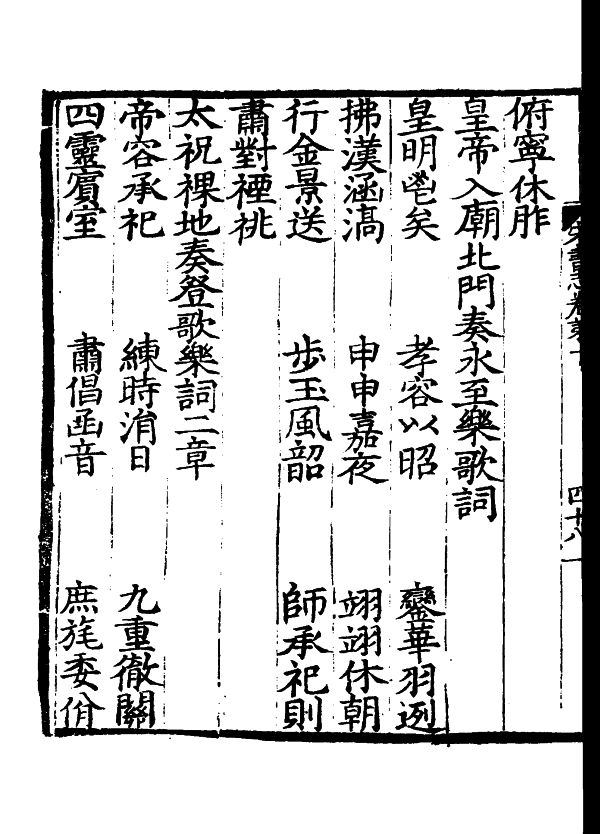 俯寧休胙
皇帝入廟北門奏永至樂歌詞
皇明鬯矣　孝容以昭　鑾華羽迾
拂漢涵滈　申申嘉夜　翊翊休朝
行金景送　步玉風韶　師承祀則
肅對禋祧
太祝祼地奏登歌樂詞二章
帝容承祀　練時涓日　九重徹關
四靈賓室　肅倡函音　庶旄委佾
書志卷第十　四十八